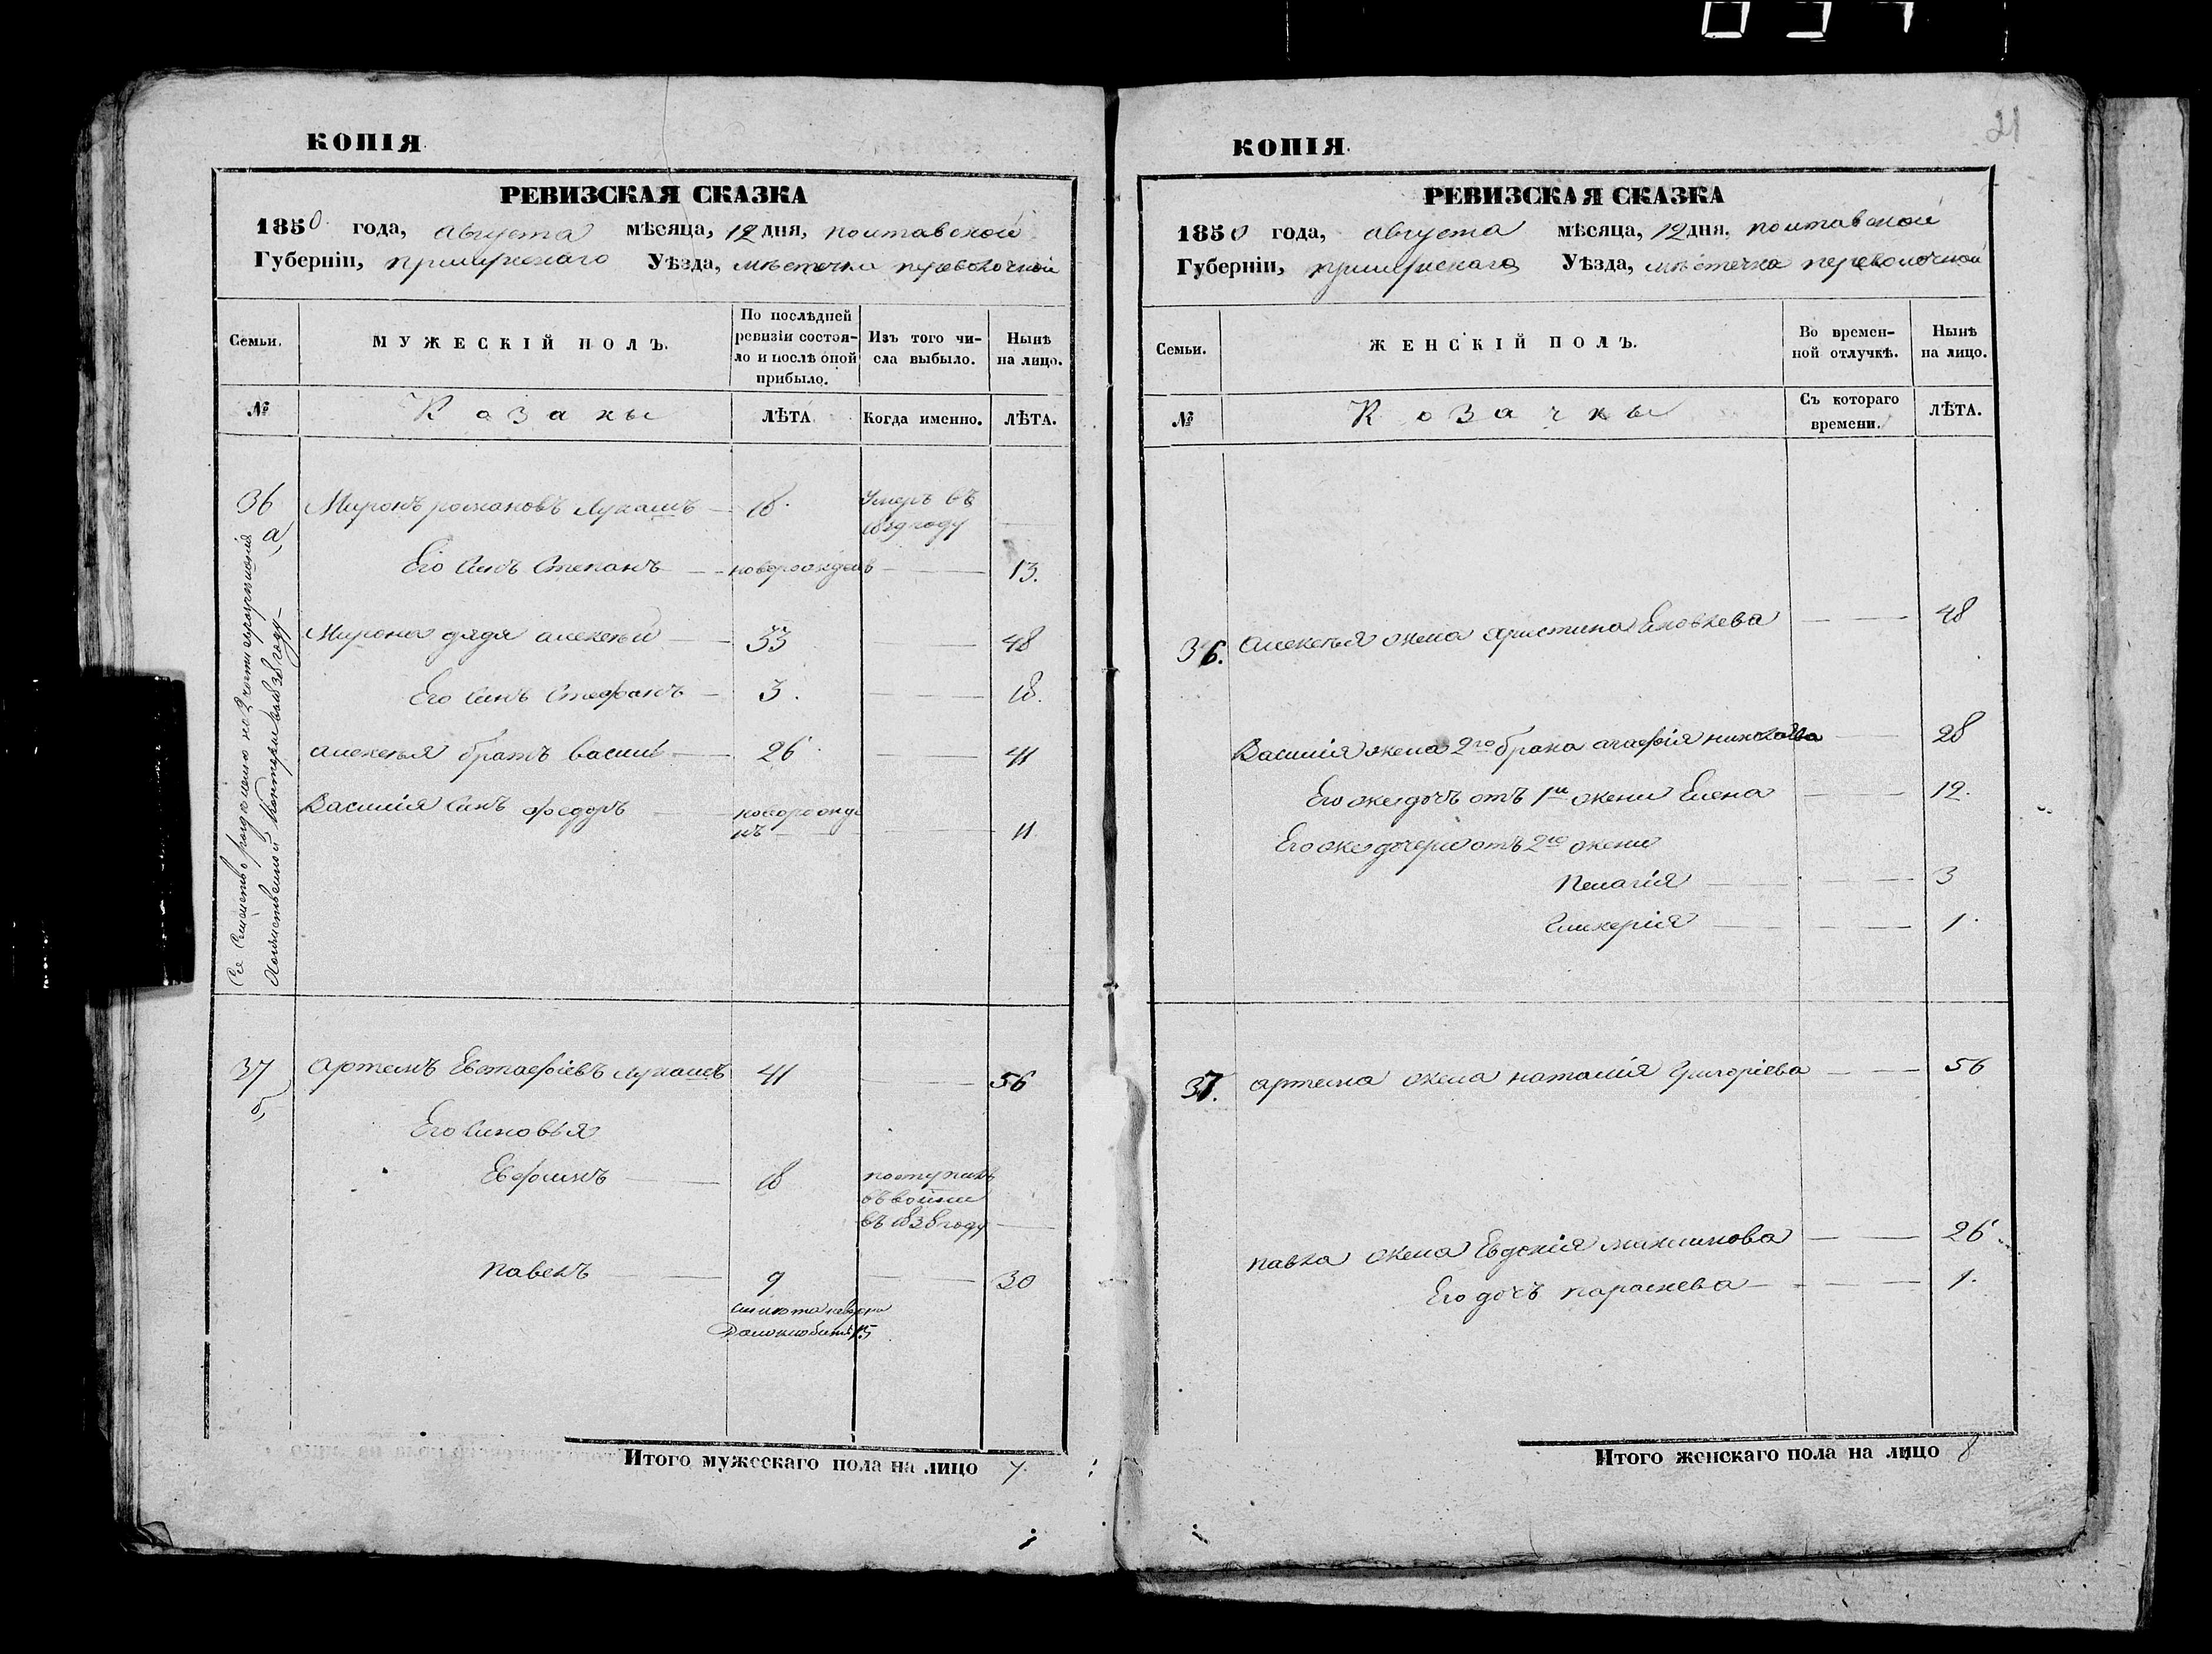 КОПІЯ.
РЕВИЗСКАЯ СКАЗКА
1850 года, августа мѣсяца, 12 дня, полтавской
Губерніи, прилукскаго Уѣзда, мѣстечка переволочной
Семьи.
МУЖЕСКІЙ ПОЛЪ.
По послѣдней
ревизіи состоя-
ло и послѣ оной
прибыло.
Изъ того чи-
сла выбыло.
Нынѣ
на лицо.
№
Козаки
ЛѢТА.
Когда именно.
ЛѢТА.
36 Миронъ романовъ Лукашъ 18 Умеръ въ
а, году
Его синъ Степанъ новорожден 13.
Мирона дядя алексѣй 33 48
Его синъ Стефанъ 3. 18.
алексѣя братъ василь 26 41
Василія синъ федоръ новорожде
нъ 11
37 Артемъ Евстафіевъ Лукашъ 41 56
б,
Его синовья
Ефимъ 18 поступилъ
въ 1838 году
павелъ 9 30
15
Итого мужескаго пола на лицо 7.
21
КОПІЯ.
РЕВИЗСКАЯ СКАЗКА
1850 года, августа мѣсяца, 12 дня, полтавской
Губерніи, прилукскаго Уѣзда, мѣстечка переволочной
Семьи.
ЖЕНСКІЙ ПОЛЪ.
Во времен-
ной отлучкѣ.
Нынѣ
на лицо.
№
Козачки
Съ котораго
времени.
ЛѢТА.
36. Алексѣя жена христина Яковлева 48
Василія жена 2го брака агафія николаева 28
Его же дочь отъ 1й жени Елена 12.
Его же дочери отъ 2го жени
Пелагія 3
Гликерія 1.
37. артема жена наталія Григоріева 56
павла жена Евдокія максимова 26
Его дочь параскева 1.
Итого женскаго пола на лицо 8